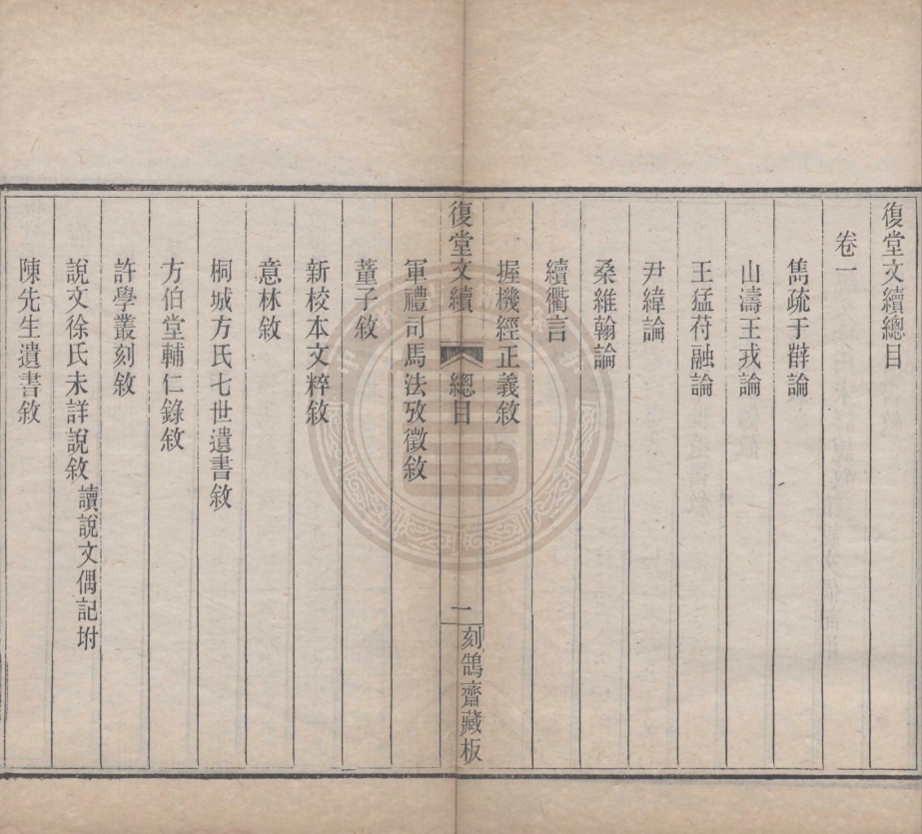 復堂文續總目
卷一
雋疏于辟論
山濤王戎論
王猛苻融論
尹緯論
桑維翰論
續衢言
握機經正義敘
復堂文續
總目
一
刻鵠齋藏板
軍禮司馬法攷徵敘
董子敘
新校本文粹敘
意林敘
桐城方氏七世遺書敘
方伯堂輔仁錄敘
許學叢刻敘
說文徐氏未詳說敘 讀說文偶記坿
陳先生遺書敘